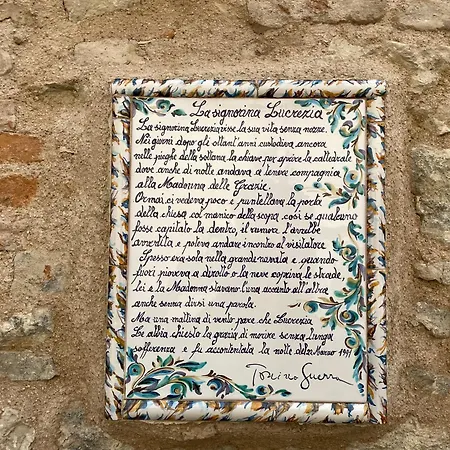 La signorina Lucrezia
La signorina Lucrezia visse la sua vita senza nozze.
Nei giorni dopo gli ottant'anni custodiva ancora
nelle pieghe della sottana la chiave per aprire la cattedrale
dove anche di notte andava a tenere compagnia
alla Madonna delle Grazie.
Ormai ci vedeva poco e puntellava la porta
della chiesa col manico della scopa, così se qualcuno
fosse capitato là dentro, il rumore l'avrebbe
avvertita e poteva andare incontro al visitatore
Spesso era sola nella grande navata e quando
fuori pioveva a dirotto o la neve copriva le strade
lei e la Madonna stavano l'una accanto all'altra
anche senza dirsi una parola.
Ma una mattina di vento pare che Lucrezia
Le abbia chiesto la grazia di morire senza lunga
sofferenza e fu accontentata la notte del Marzo 1941
Tonino Guerra